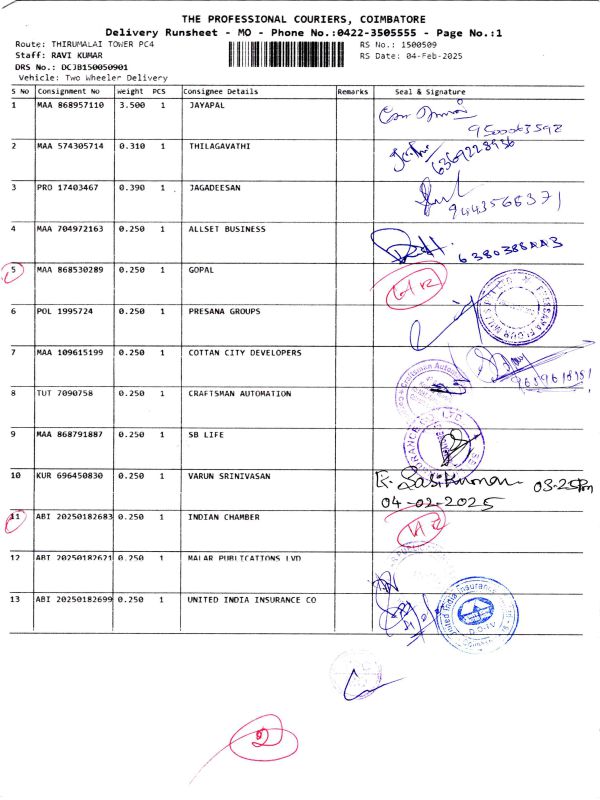 THE PROFESSIONAL COURIERS, COIMBATORE
Delivery Runsheet - MO - Phone No.:0422-3505555 - Page No.:1
Route: THIRUMALAI TOWER PC4 RS No.: 1500509
Staff: RAVI KUMAR RS Date: 04-Feb-2025
DRS No.: DCJB150050901
Vehicle: Two Wheeler Delivery
S No Consignment No Weight PCS Consignee Details Remarks Seal & Signature
1 MAA 868957110 3.500 1 JAYAPAL
2 MAA 574305714 0.310 1 THILAGAVATHI
6369228936
3 PRO 17403467 0.390 1 JAGADEESAN
9443568371
4 MAA 704972163 0.250 1 ALLSET BUSINESS
5 MAA 868530289 0.250 1 GOPAL
6 POL 1995724 0.250 1 PRESANA GROUPS
7 MAA 109615199 0.250 1 COTTAN CITY DEVELOPERS
8 TUT 7090758 0.250 1 CRAFTSMAN AUTOMATION
9 MAA 868791887 0.250 1 SB LIFE
10 KUR 696450830 0.250 1 VARUN SRINIVASAN
03-25pm
04-02-2025
11 ABI 20250182683 0.250 1 INDIAN CHAMBER
12 ABI 20250182621 0.250 1 MALAR PUBLICATIONS LVD
13 ABI 20250182699 0.250 1 UNITED INDIA INSURANCE CO
United India Insurance
2